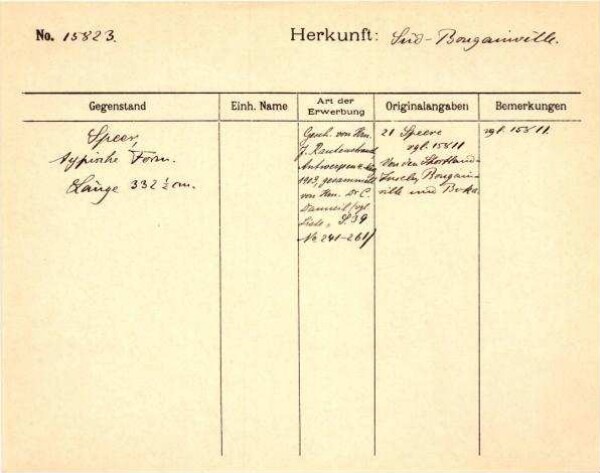 No. 15823.
Herkunft: Süd-Bougainville.
Gegenstand
Einh. Name
Art der
Erwerbung
Originalangaben
Bemerkungen
Speer,
typische Form.
Länge 332 ½ cm.
Gesch. von Hrn.
J. Rautenstrauch
Antwerpen
1903, gesammelt
von Hrn. Dr. C.
Danneil, vgl.
Liste, S. 39
No 241-261/
21 Speere
vgl. 15811
Von den Shortland-
Inseln, Bougain-
ville und Buka.
vgl. 15811.